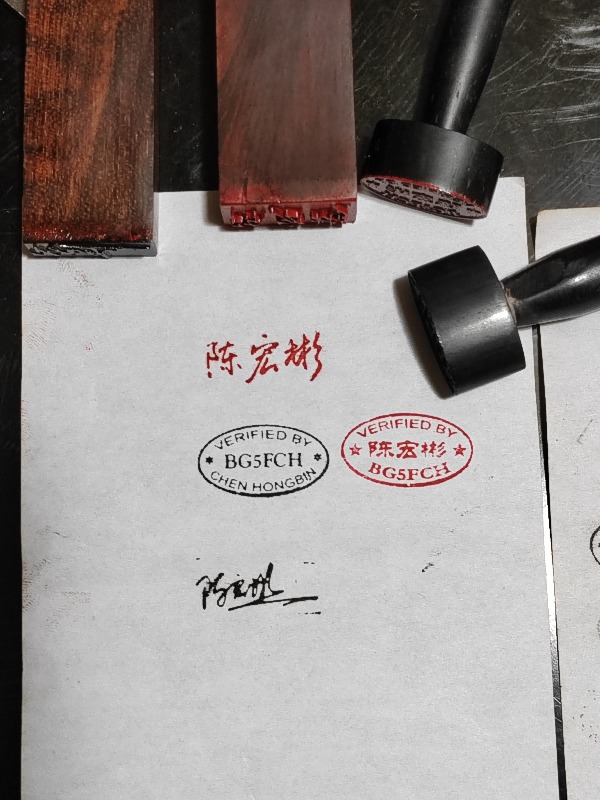 陈宏彬
VERIFIED BY
BG5FCH
CHEN HONGBIN
VERIFIED BY
陈宏彬
BG5FCH
陈宏彬